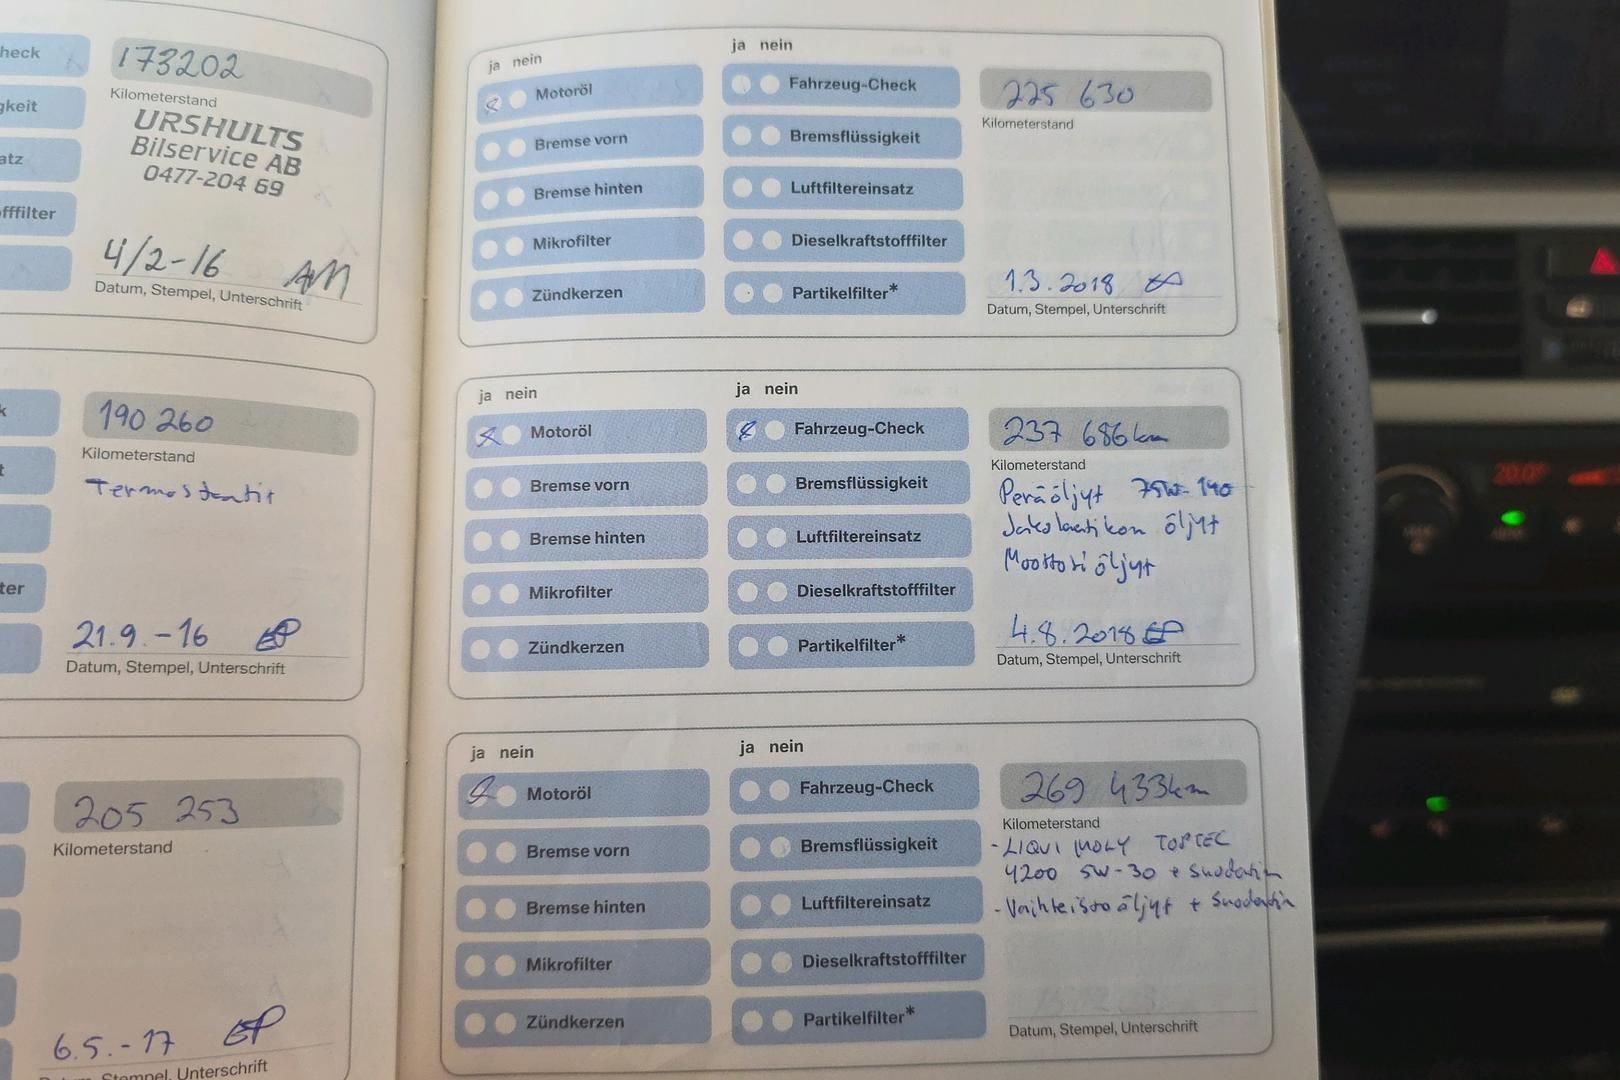 heck
gkeit
atz
offfilter
173202
Kilometerstand
URSHULTS
Bilservice AB
0477-204 69
4/2-16 AM
Datum, Stempel, Unterschrift
k
t
ter
190 260
Kilometerstand
Termostaatit
21.9.-16 EP
Datum, Stempel, Unterschrift
205 253
Kilometerstand
6.5.-17 EP
Stempel, Unterschrift
ja nein
Motoröl
Bremse vorn
Bremse hinten
Mikrofilter
Zündkerzen
ja nein
Fahrzeug-Check
Bremsflüssigkeit
Luftfiltereinsatz
Dieselkraftstofffilter
Partikelfilter*
225 630
Kilometerstand
1.3.2018
Datum, Stempel, Unterschrift
ja nein
Motoröl
Bremse vorn
Bremse hinten
Mikrofilter
Zündkerzen
ja nein
Fahrzeug-Check
Bremsflüssigkeit
Luftfiltereinsatz
Dieselkraftstofffilter
Partikelfilter*
237 686km
Kilometerstand
Peräöljyt 75W-140
Jakolaatikon öljyt
Moottoriöljyt
4.8.2018 EP
Datum, Stempel, Unterschrift
ja nein
Motoröl
Bremse vorn
Bremse hinten
Mikrofilter
Zündkerzen
ja nein
Fahrzeug-Check
Bremsflüssigkeit
Luftfiltereinsatz
Dieselkraftstofffilter
Partikelfilter*
269 433km
Kilometerstand
- LIQUI MOLY TOPTEC
4200 5W-30 + Suodatin
- Vaihteistoöljyt + Suodatin
Datum, Stempel, Unterschrift